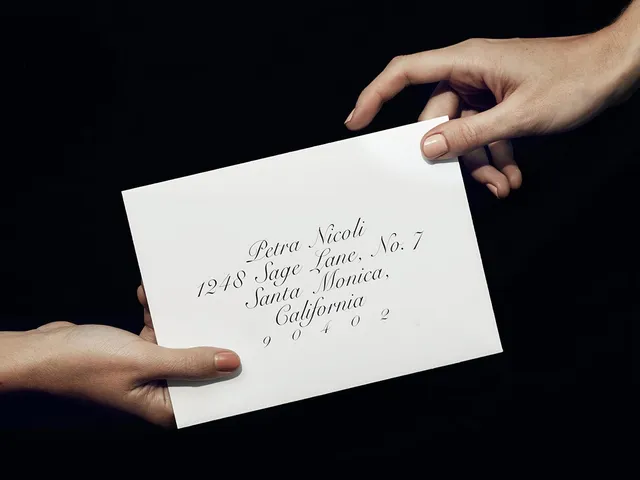 Petra Nicoli
1248 Sage Lane, No. 7
Santa Monica,
California
9 0 4 0 2